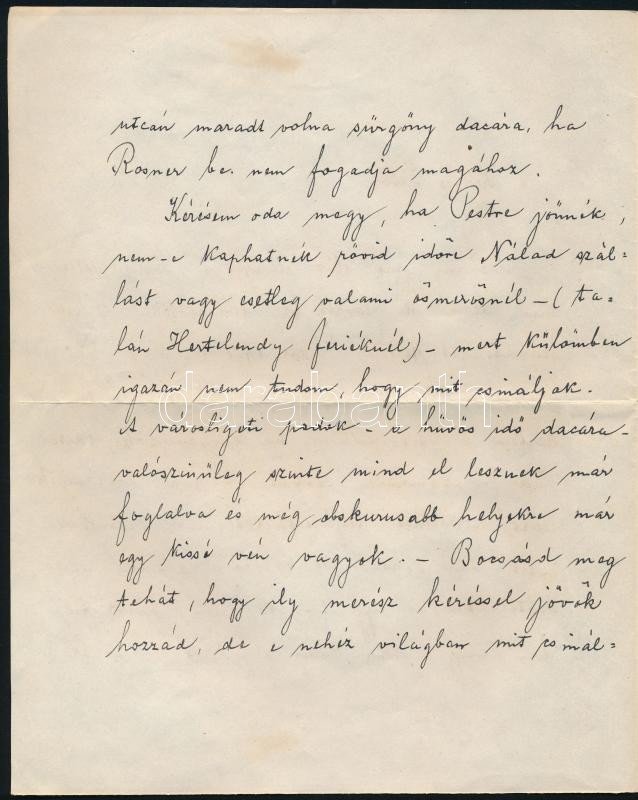 utcán maradt volna sürgöny dacára, ha
Rosner be. nem fogadja magához.
Kérésem oda megy, ha Pestre jönnék,
nem-e kaphatnék rövid időre Nálad szál=
lást vagy esetleg valami ösmerősnél – (ta=
lán Hertelendy Feriéknél) – mert külömben
igazán nem tudom, hogy mit csináljak.
A városligeti padok – a hűvös idő dacára –
valószinüleg szinte mind el lesznek már
foglalva és még obskurusabb helyekre már
egy kissé vén vagyok. – Bocsásd meg
tehát, hogy ily merész kéréssel jövök
hozzád, de e nehéz világban mit csinál=
darabanth